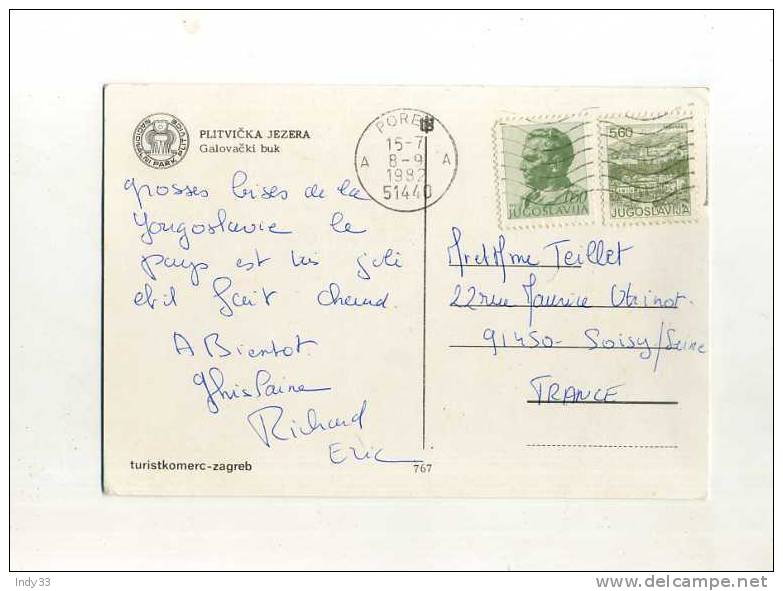 PLITVIČKA JEZERA
Galovački buk
NACIONALNI PARK PLITVICE
grosses bises de la
Yougoslavie le
pays est très joli
et il fait chaud.
A Bientot.
Ghislaine
Richard
Eric
turistkomerc-zagreb
767
POREČ
15-7
8-9
A A
1982
51440
JUGOSLAVIJA
5.60
JUGOSLAVIJA
Mr et Mme Teillet
22 rue Maurice Utrinot.
91450 - Soisy/Seine
FRANCE
Indy33
www.delcampe.net